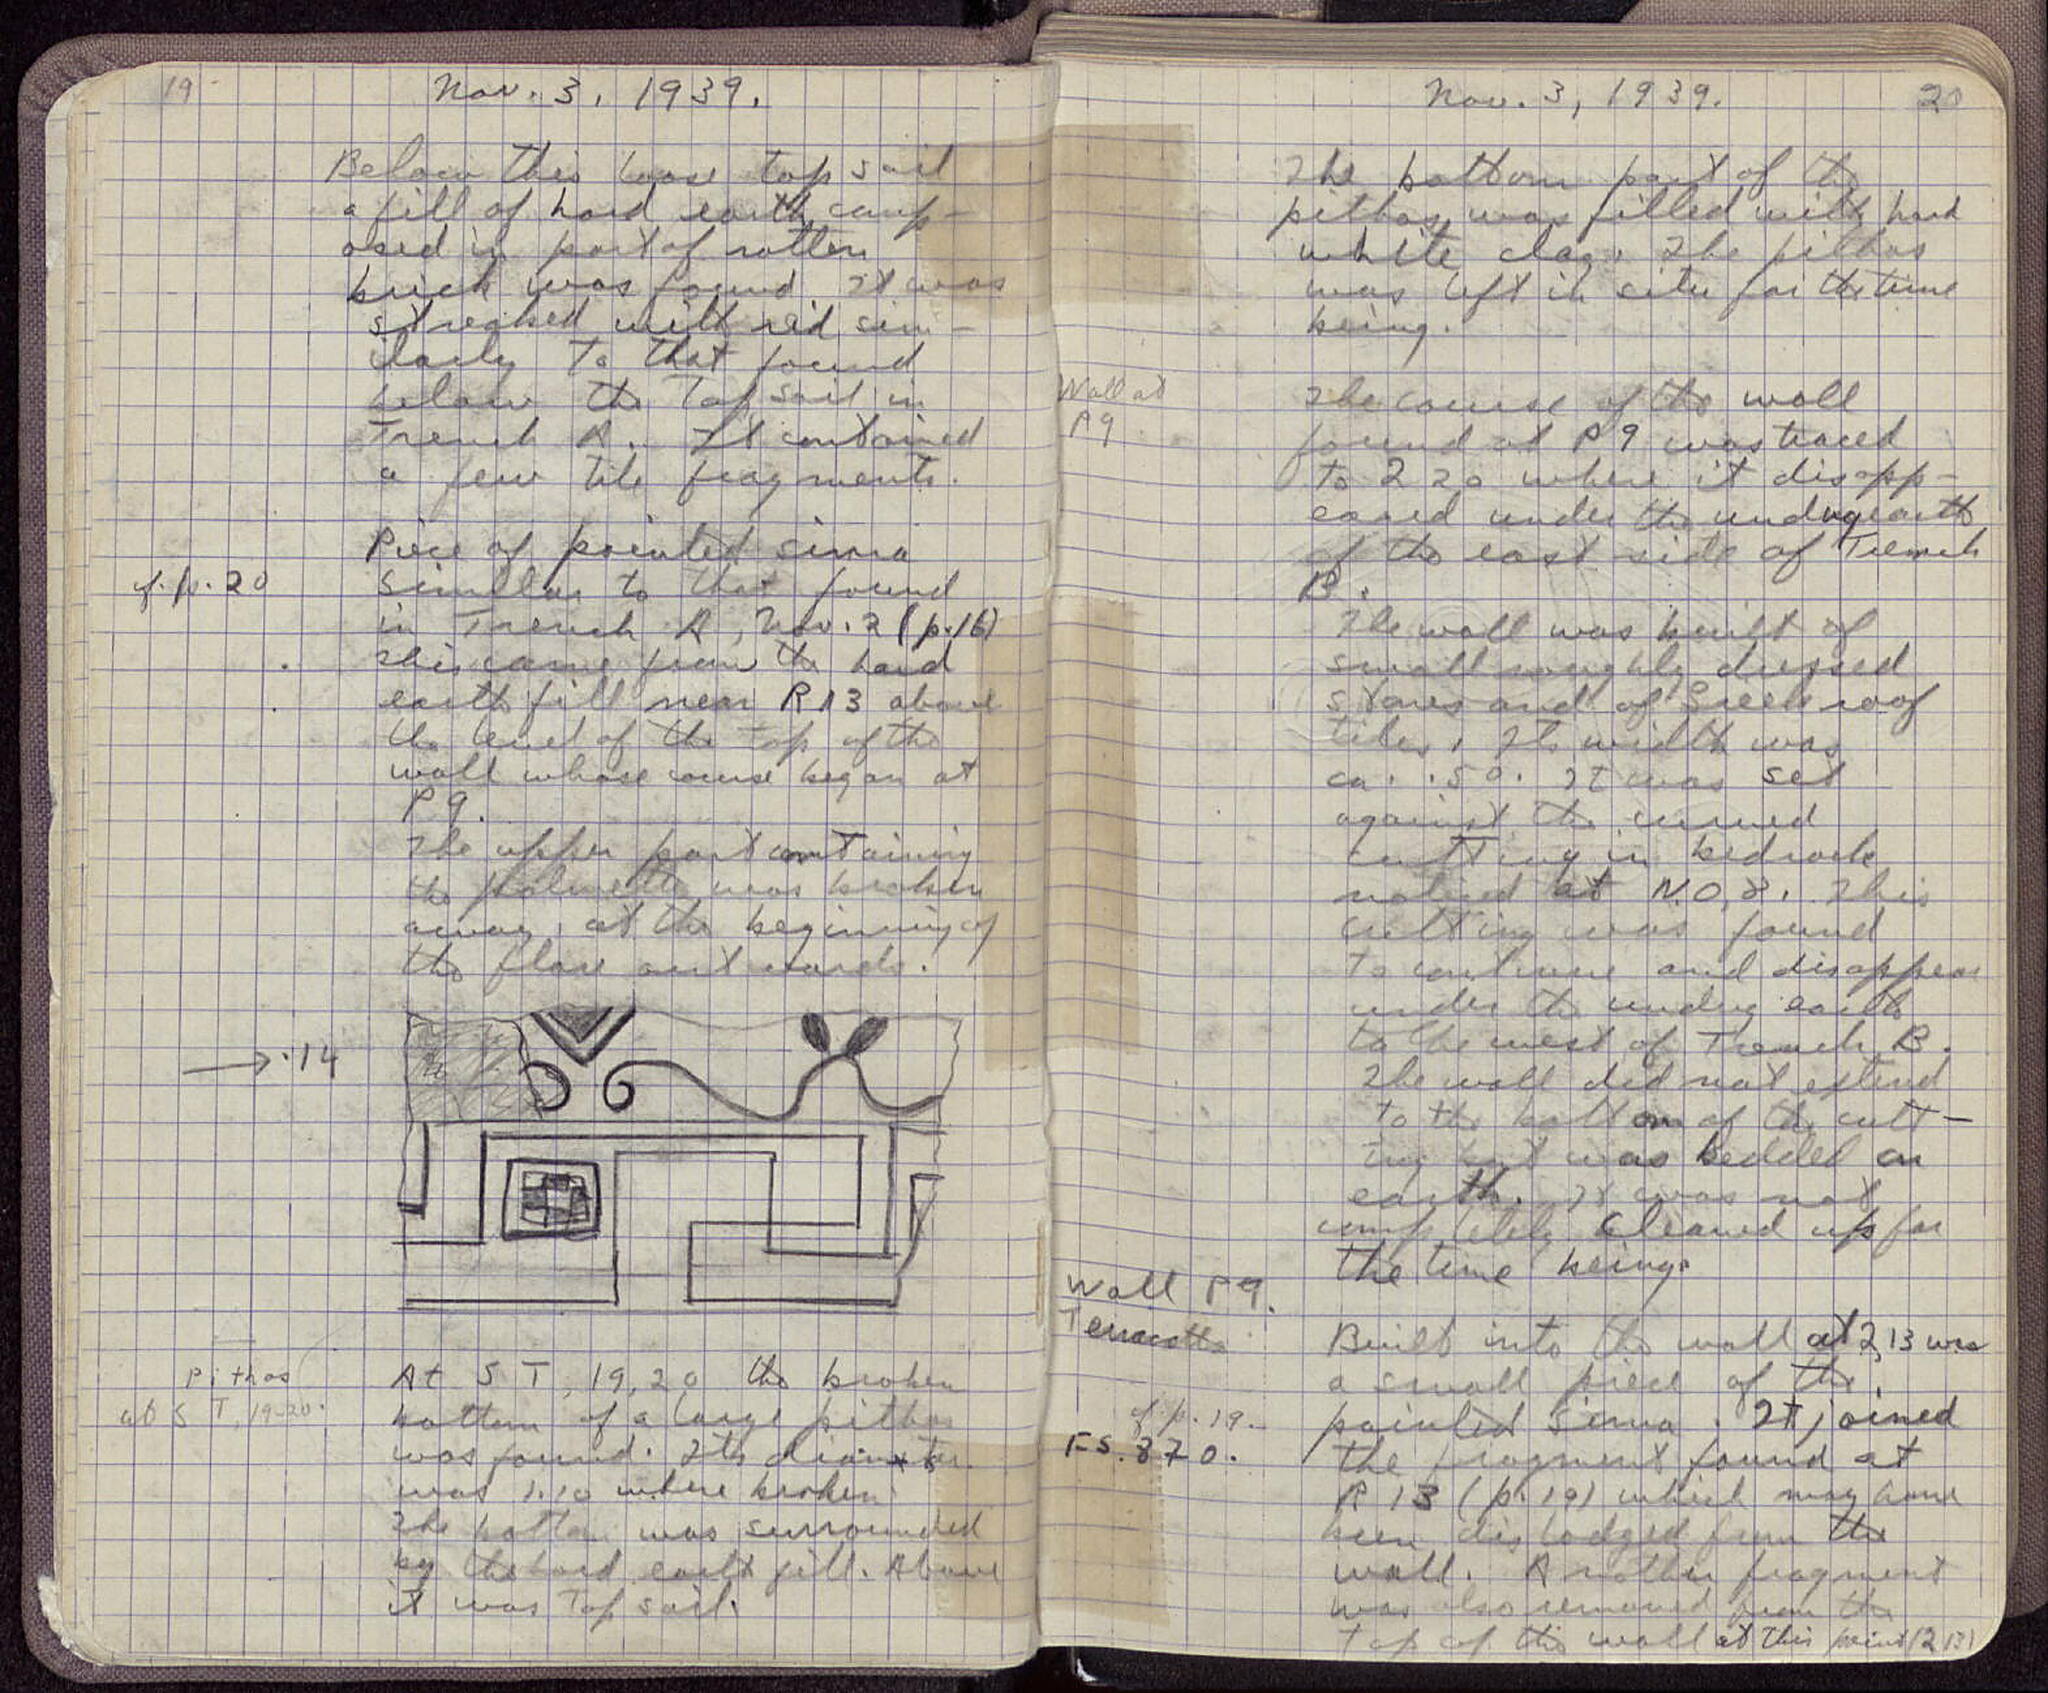 19
Nov. 3, 1939.
Below this loose top soil
a fill of hard earth comp-
osed in part of rotten
brick was found. It was
streaked with red sim-
ilarly to that found
below the top soil in
Trench A. It contained
a few tile fragments.
Piece of painted sima
cf. p. 20
similar to that found
in Trench A, Nov. 2 (p. 16)
This came from the hard
earth fill near R 13 above
the level of the top of the
wall whose course began at
P 9.
The upper part containing
the palmette was broken
away at the beginning of
the flare outwards.
→ .14
Pithos
at S T, 19-20.
At S T, 19, 20 the broken
bottom of a large pithos
was found. Its diameter
was 1.10 where broken.
The bottom was surrounded
by the hard earth fill. Above
it was top soil.
Nov. 3, 1939.
20
The bottom part of the
pithos was filled with hard
white clay. The pithos
was left in situ for the time
being.
Wall at
P 9
The course of the wall
found at P 9 was traced
to 2 20 where it disapp-
eared under the undug earth
of the east side of Trench
B.
The wall was built of
small roughly dressed
stones and of Greek roof
tiles. Its width was
ca. .50. It was set
against the curved
cutting in bedrock
noticed at N.O, 8. This
cutting was found
to continue and disappear
under the undug earth
to the west of Trench B.
The wall did not extend
to the bottom of the cutt-
ing but was bedded on
earth. It was not
completely cleaned up for
the time being.
Wall P 9.
Terracotta
Built into the wall at 2, 13 was
a small piece of the
cf. p. 19.
painted sima. It joined
FS. 870.
the fragment found at
R 13 (p. 19) which may have
been dislodged from the
wall. Another fragment
was also removed from the
top of the wall at this point (2 13)